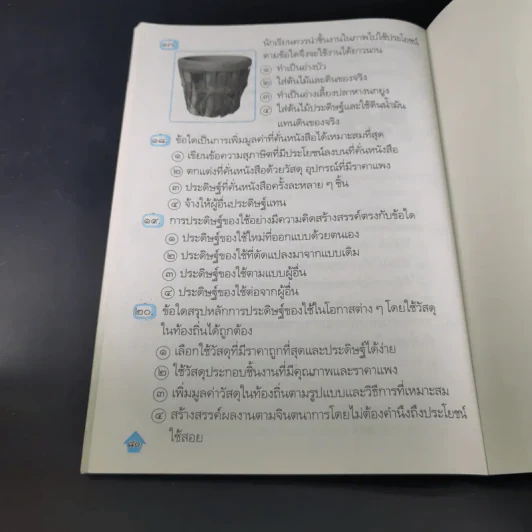 ๑๗
นักเรียนควรนำชิ้นงานในภาพไปใช้ประโยชน์
ตามข้อใดจึงจะใช้งานได้ยาวนาน
๑ ทำเป็นอ่างบัว
๒ ใส่ต้นไม้และดินของจริง
๓ ทำเป็นอ่างเลี้ยงปลาหางนกยูง
๔ ใส่ต้นไม้ประดิษฐ์และใช้ดินน้ำมัน
แทนดินของจริง
๑๘ ข้อใดเป็นการเพิ่มมูลค่าที่คั่นหนังสือได้เหมาะสมที่สุด
๑ เขียนข้อความสุภาษิตที่มีประโยชน์ลงบนที่คั่นหนังสือ
๒ ตกแต่งที่คั่นหนังสือด้วยวัสดุ อุปกรณ์ที่มีราคาแพง
๓ ประดิษฐ์ที่คั่นหนังสือครั้งละหลาย ๆ ชิ้น
๔ จ้างให้ผู้อื่นประดิษฐ์แทน
๑๙ การประดิษฐ์ของใช้อย่างมีความคิดสร้างสรรค์ตรงกับข้อใด
๑ ประดิษฐ์ของใช้ใหม่ที่ออกแบบด้วยตนเอง
๒ ประดิษฐ์ของใช้ที่ดัดแปลงมาจากแบบเดิม
๓ ประดิษฐ์ของใช้ตามแบบผู้อื่น
๔ ประดิษฐ์ของใช้ต่อจากผู้อื่น
๒๐ ข้อใดสรุปหลักการประดิษฐ์ของใช้ในโอกาสต่าง ๆ โดยใช้วัสดุ
ในท้องถิ่นได้ถูกต้อง
๑ เลือกใช้วัสดุที่มีราคาถูกที่สุดและประดิษฐ์ได้ง่าย
๒ ใช้วัสดุประกอบชิ้นงานที่มีคุณภาพและราคาแพง
๓ เพิ่มมูลค่าวัสดุในท้องถิ่นตามรูปแบบและวิธีการที่เหมาะสม
๔ สร้างสรรค์ผลงานตามจินตนาการโดยไม่ต้องคำนึงถึงประโยชน์
ใช้สอย